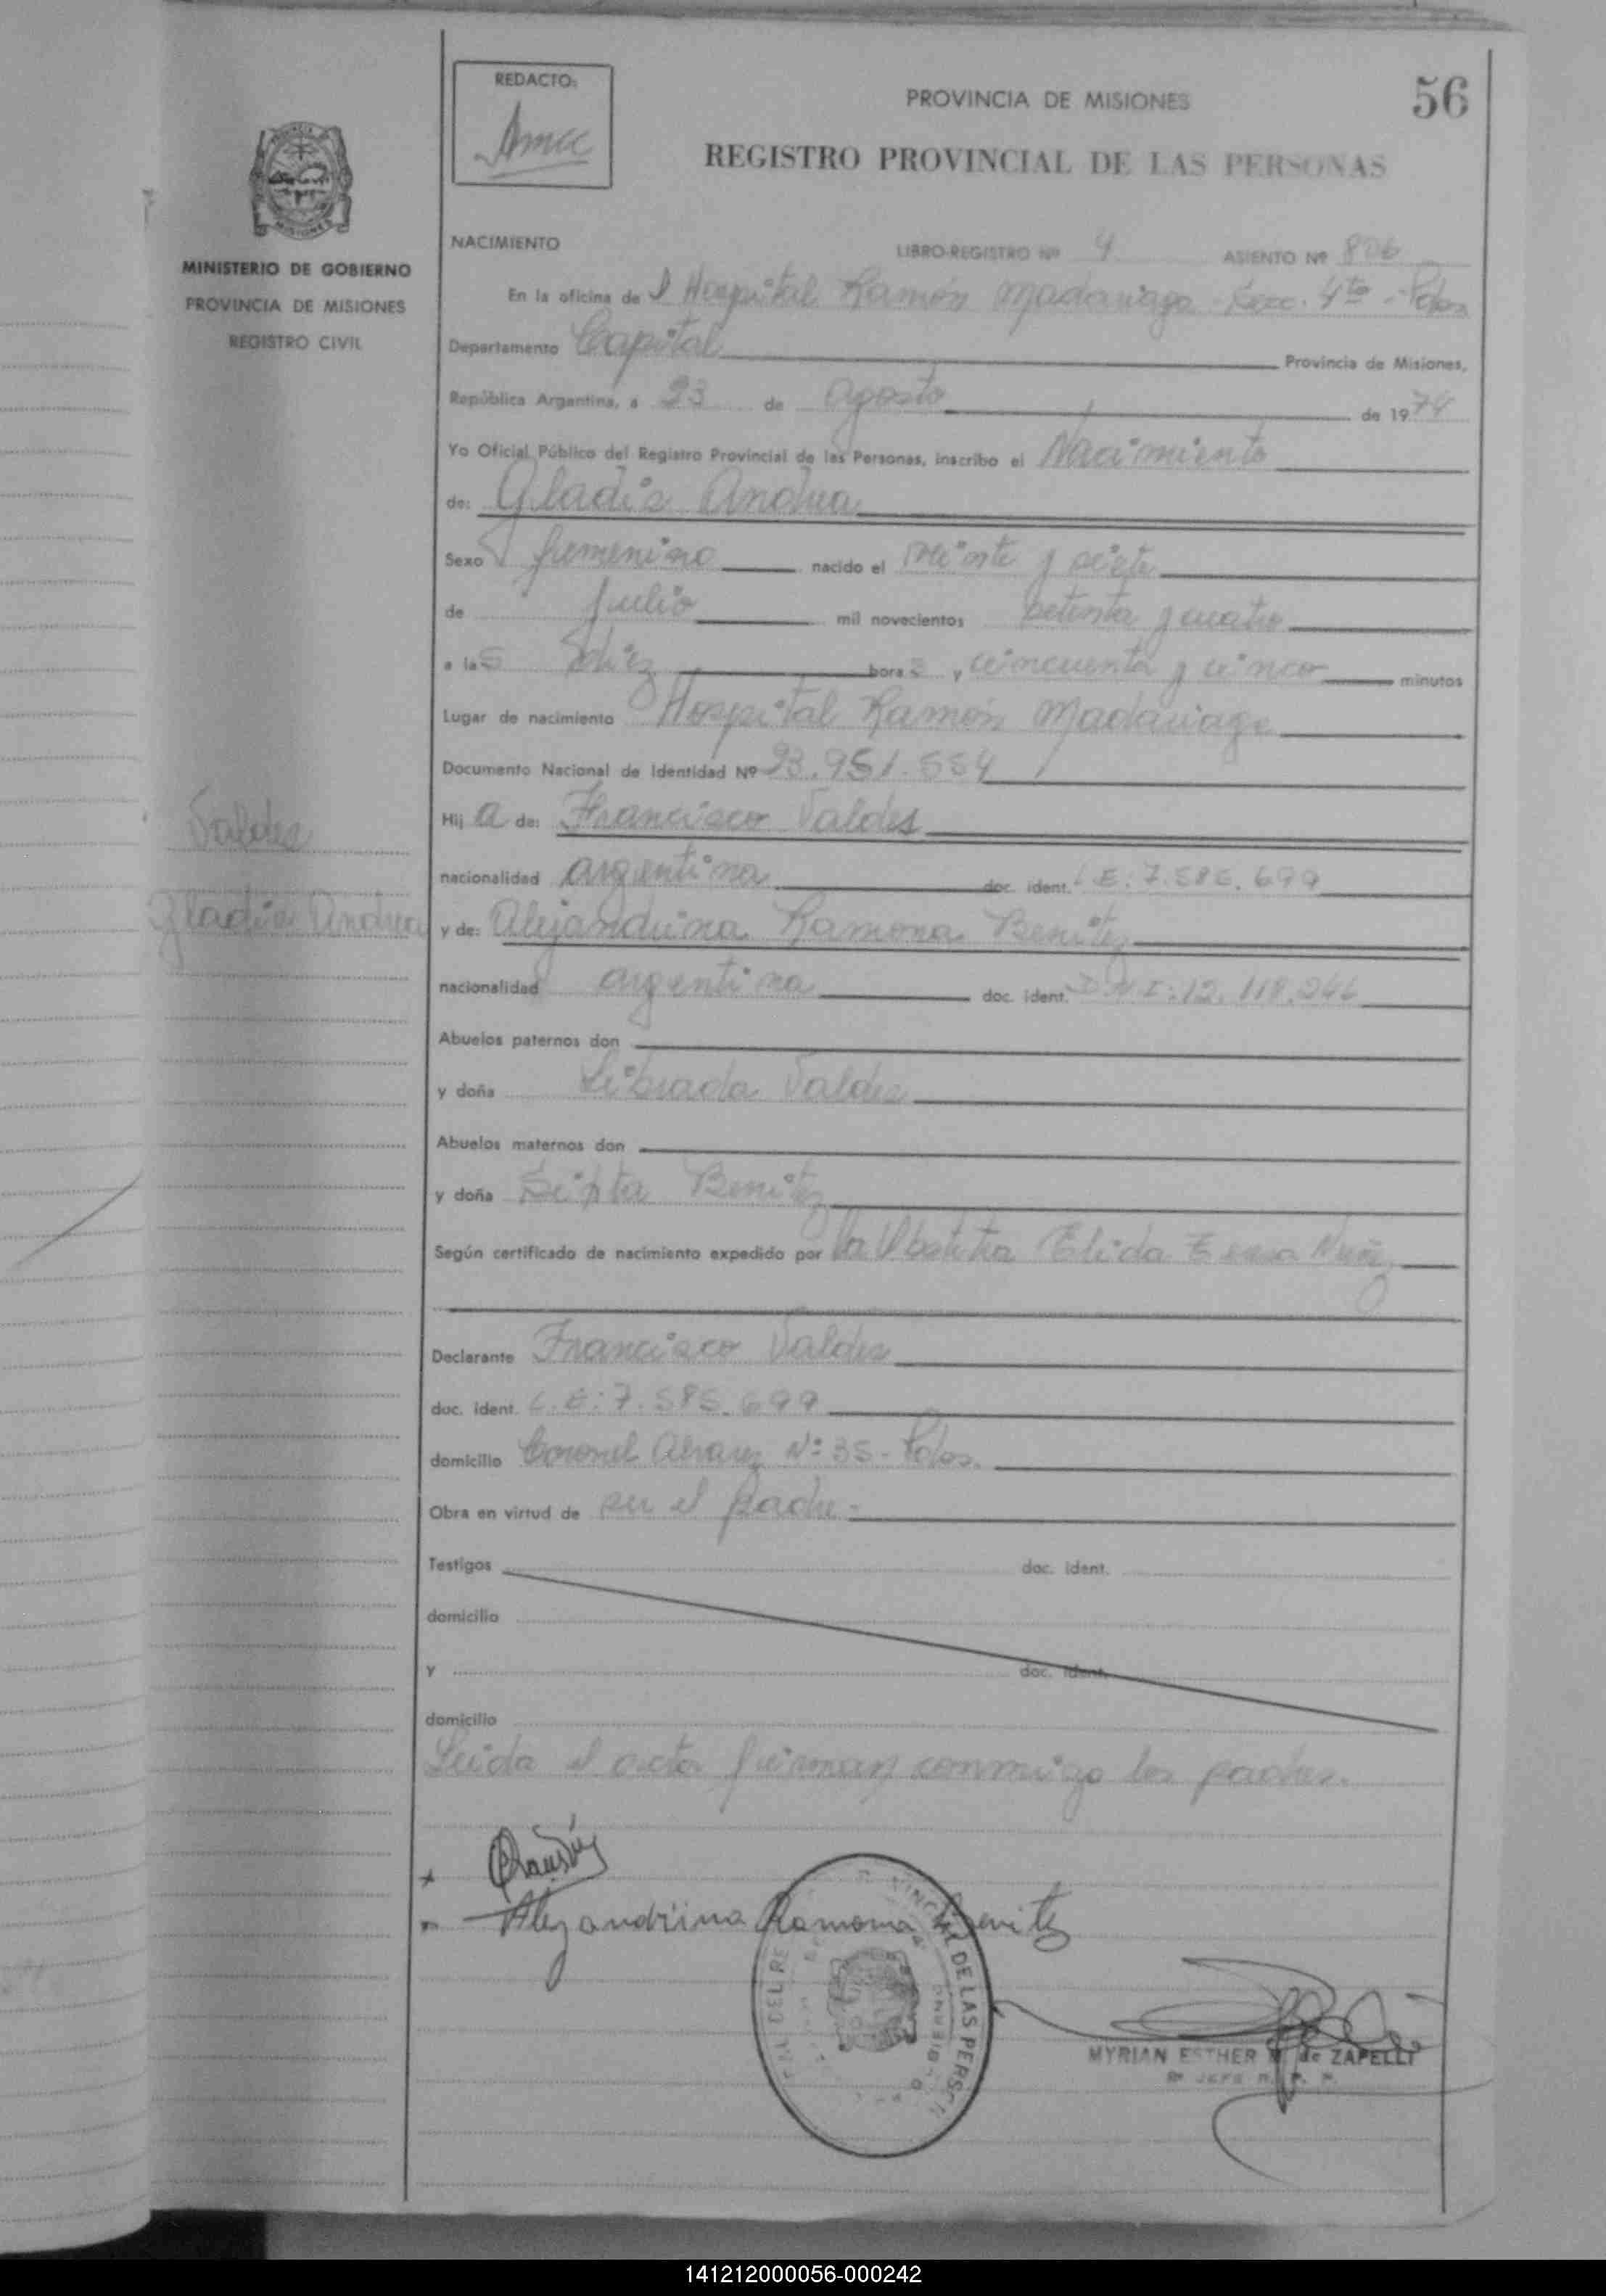 56
REDACTO:
PROVINCIA DE MISIONES
REGISTRO PROVINCIAL DE LAS PERSONAS
MISIONES
MINISTERIO DE GOBIERNO
PROVINCIA DE MISIONES
REGISTRO CIVIL
Valdes
Gladis Andrea
NACIMIENTO LIBRO-REGISTRO Nº 4 ASIENTO Nº 806
En la oficina de l Hospital Ramón Madariaga - Secc. 4ta - Pdas
Departamento Capital Provincia de Misiones,
República Argentina, a 23 de agosto de 1974
Yo Oficial Público del Registro Provincial de las Personas, inscribo el Nacimiento
de: Gladis Andrea
Sexo femenino nacido el veinte y siete
de julio mil novecientos setenta y cuatro
a las diez horas y cincuenta y cinco minutos
Lugar de nacimiento Hospital Ramón Madariaga
Documento Nacional de Identidad Nº 23.951.554
Hij a de: Francisco Valdes
nacionalidad argentina doc. ident. L.E: 7.585.699
y de: Alejandrina Ramona Benitez
nacionalidad argentina doc. ident. D.N.I: 12.118.246
Abuelos paternos don
y doña Librada Valdes
Abuelos maternos don
y doña Sixta Benitez
Según certificado de nacimiento expedido por la Obstetra Elida Nuñez
Declarante Francisco Valdes
doc. ident. L.E: 7.585.699
domicilio Coronel Alvarez Nº 35 - Pdas.
Obra en virtud de ser el padre -
Testigos doc. ident.
domicilio
y doc. ident.
domicilio
Leida el acta firman conmigo los padres.
Alejandrina Ramona Benitez
DE LAS PERSON
MYRIAN ESTHER de ZAPELLI
JEFE
141212000056-000242